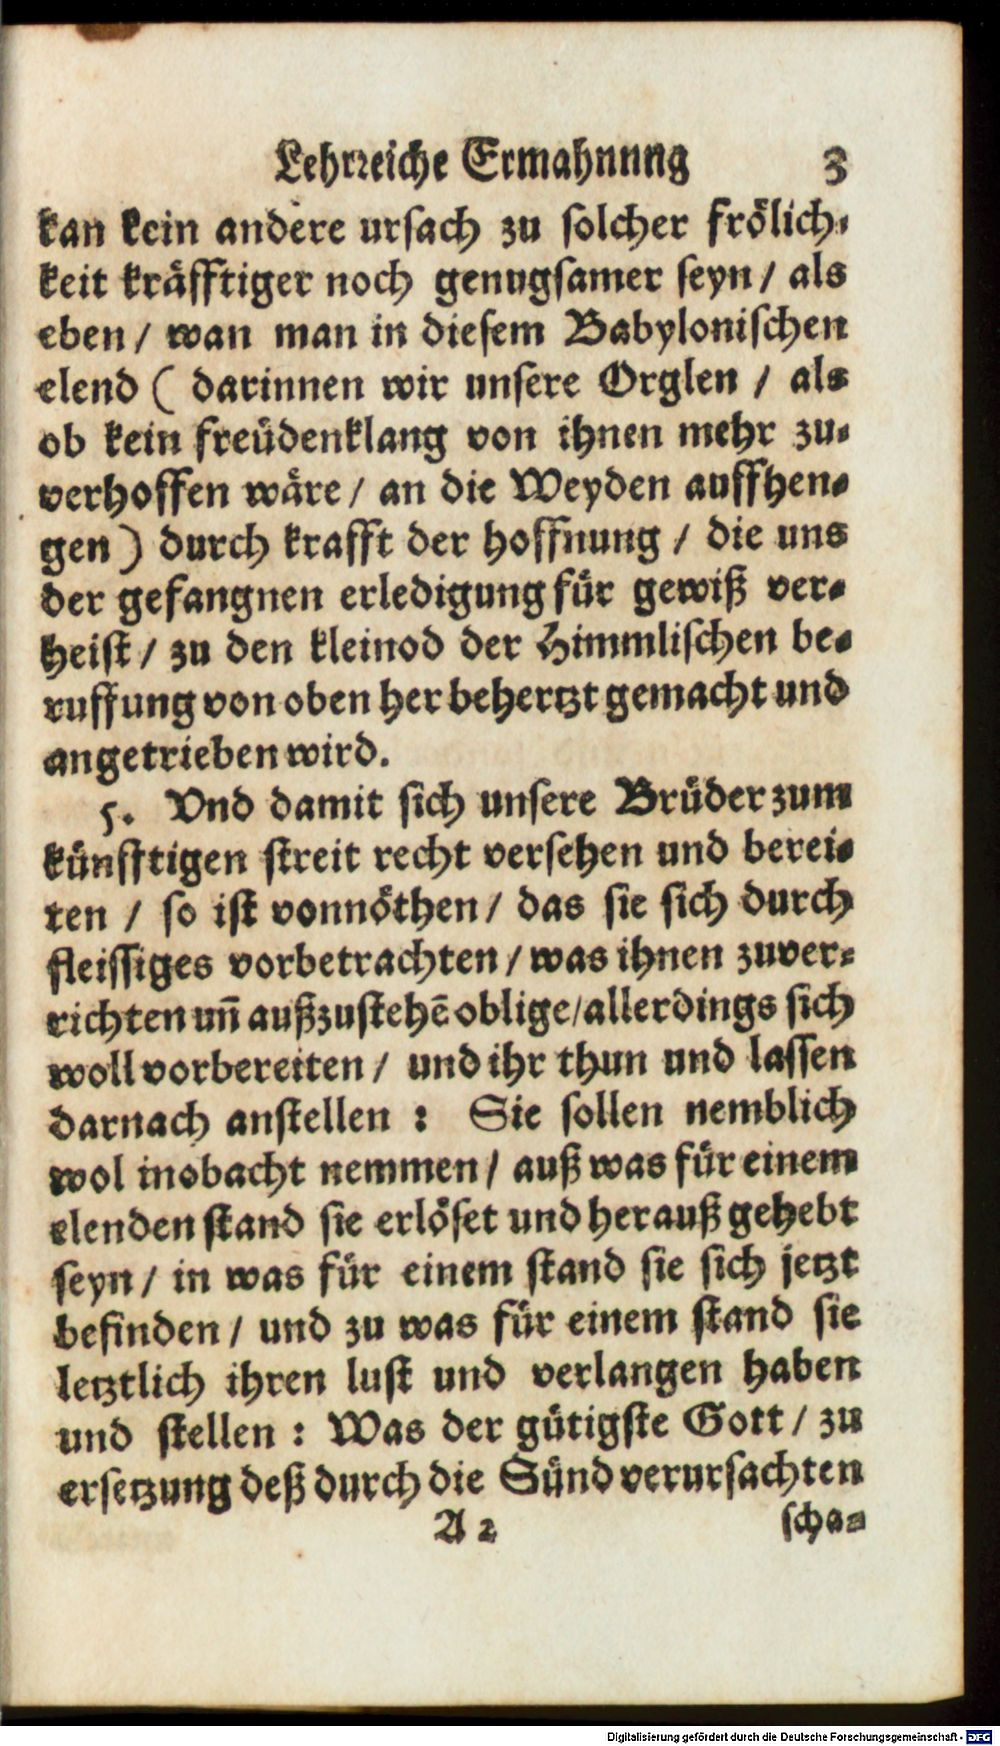 Lehrreiche Ermahnung 3
kan kein andere ursach zu solcher frölich-
keit kräfftiger noch genugsamer seyn / als
eben / wan man in diesem Babylonischen
elend ( darinnen wir unsere Orglen / als
ob kein freüdenklang von ihnen mehr zu-
verhoffen wäre / an die Weyden auffhen-
gen ) durch krafft der hoffnung / die uns
der gefangnen erledigung für gewiß ver-
heist / zu den kleinod der Himmlischen be-
ruffung von oben her behertzt gemacht und
angetrieben wird.
5. Vnd damit sich unsere Brüder zum
künfftigen streit recht versehen und berei-
ten / so ist vonnöthen / das sie sich durch
fleissiges vorbetrachten / was ihnen zuver-
richten uñ außzustehẽ oblige / allerdings sich
woll vorbereiten / und ihr thun und lassen
darnach anstellen : Sie sollen nemblich
wol inobacht nemmen / auß was für einem
elenden stand sie erlöset und herauß gehebt
seyn / in was für einem stand sie sich jetzt
befinden / und zu was für einem stand sie
letztlich ihren lust und verlangen haben
und stellen : Was der gütigste Gott / zu
ersetzung deß durch die Sünd verursachten
A 2 scha-
Digitalisierung gefördert durch die Deutsche Forschungsgemeinschaft - DFG